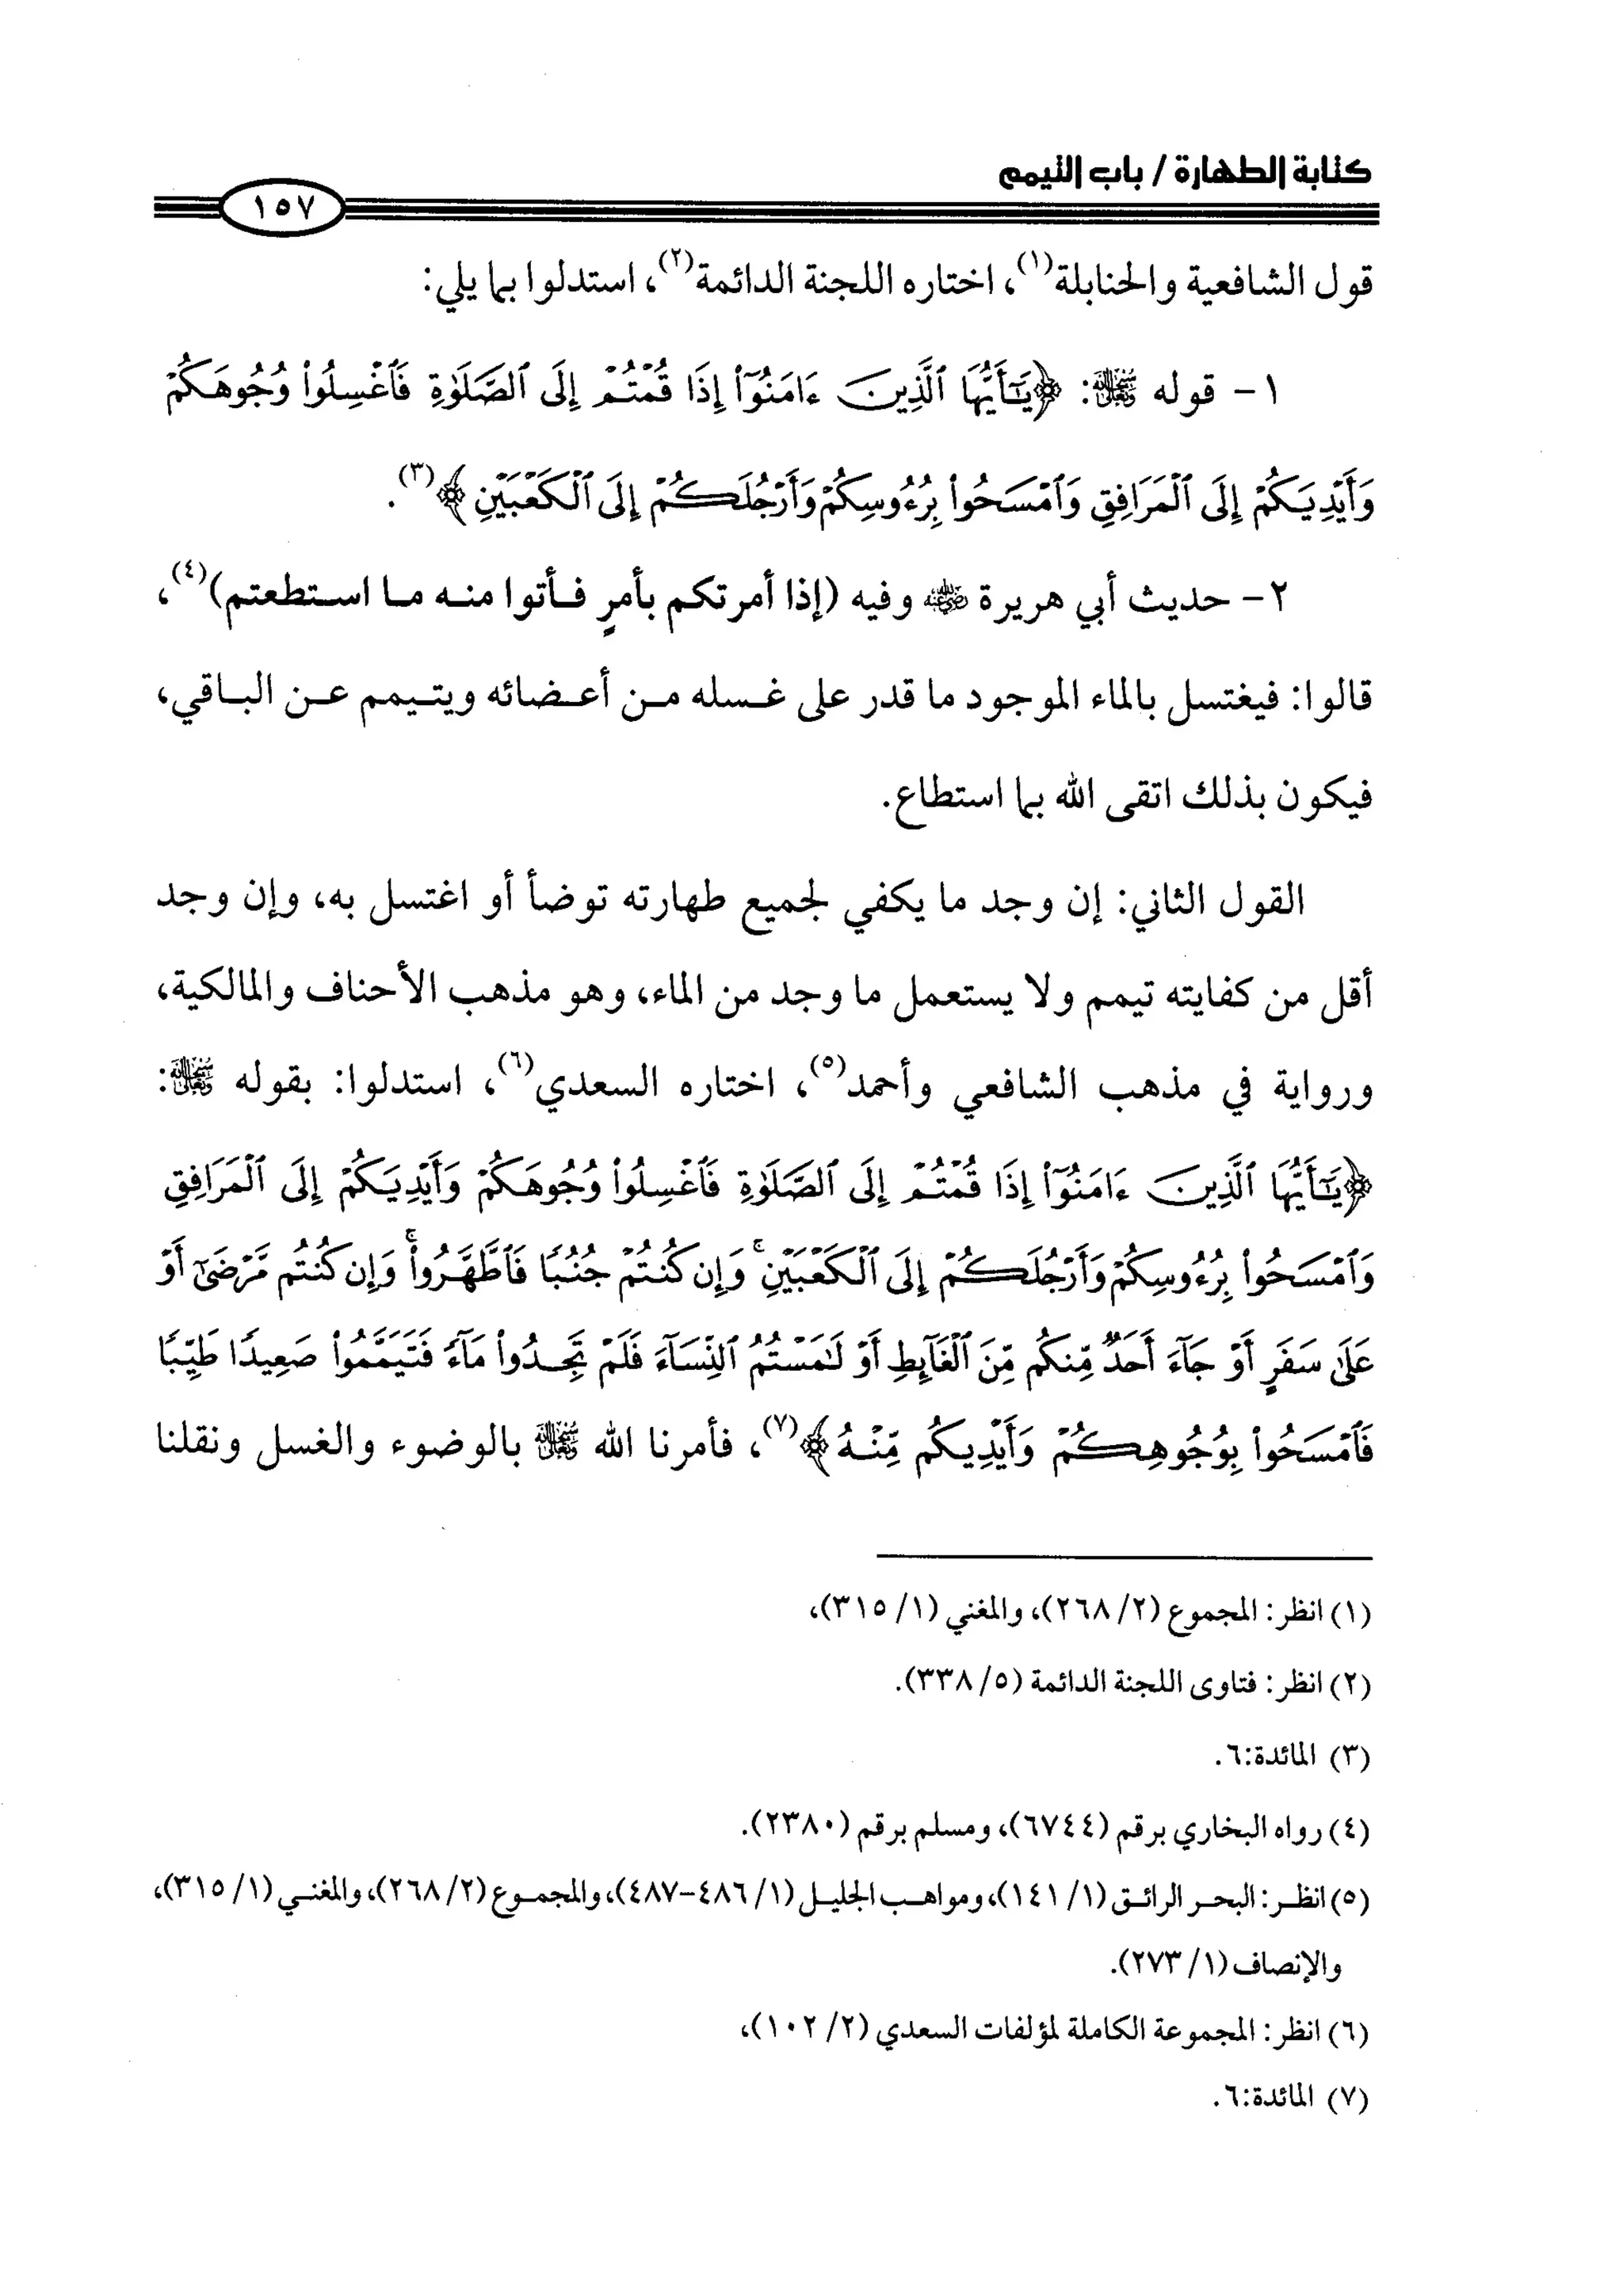 كتابة الطهارة / باب التيمم
١٥٧
قول الشافعية والحنابلة(١)، اختاره اللجنة الدائمة(٢)، استدلوا بما يلي:
١- قوله ﷻ: ﴿يَٰٓأَيُّهَا ٱلَّذِينَ ءَامَنُوٓا۟ إِذَا قُمْتُمْ إِلَى ٱلصَّلَوٰةِ فَٱغْسِلُوا۟ وُجُوهَكُمْ
وَأَيْدِيَكُمْ إِلَى ٱلْمَرَافِقِ وَٱمْسَحُوا۟ بِرُءُوسِكُمْ وَأَرْجُلَكُمْ إِلَى ٱلْكَعْبَيْنِ﴾(٣).
٢- حديث أبي هريرة رضي الله عنه وفيه (إذا أمرتكم بأمرٍ فأتوا منه ما استطعتم)(٤)،
قالوا: فيغتسل بالماء الموجود ما قدر على غسله من أعضائه ويتيمم عن الباقي،
فيكون بذلك اتقى الله بما استطاع.
القول الثاني: إن وجد ما يكفي لجميع طهارته توضأ أو اغتسل به، وإن وجد
أقل من كفايته تيمم ولا يستعمل ما وجد من الماء، وهو مذهب الأحناف والمالكية،
ورواية في مذهب الشافعي وأحمد(٥)، اختاره السعدي(٦)، استدلوا: بقوله ﷻ:
﴿يَٰٓأَيُّهَا ٱلَّذِينَ ءَامَنُوٓا۟ إِذَا قُمْتُمْ إِلَى ٱلصَّلَوٰةِ فَٱغْسِلُوا۟ وُجُوهَكُمْ وَأَيْدِيَكُمْ إِلَى ٱلْمَرَافِقِ
وَٱمْسَحُوا۟ بِرُءُوسِكُمْ وَأَرْجُلَكُمْ إِلَى ٱلْكَعْبَيْنِ ۚ وَإِن كُنتُمْ جُنُبًا فَٱطَّهَّرُوا۟ ۚ وَإِن كُنتُم مَّرْضَىٰٓ أَوْ
عَلَىٰ سَفَرٍ أَوْ جَآءَ أَحَدٌ مِّنكُم مِّنَ ٱلْغَآئِطِ أَوْ لَٰمَسْتُمُ ٱلنِّسَآءَ فَلَمْ تَجِدُوا۟ مَآءً فَتَيَمَّمُوا۟ صَعِيدًا طَيِّبًا
فَٱمْسَحُوا۟ بِوُجُوهِكُمْ وَأَيْدِيكُم مِّنْهُ﴾(٧)، فأمرنا الله ﷻ بالوضوء والغسل ونقلنا
(١) انظر: المجموع (٢/ ٢٦٨)، والمغني (١/ ٣١٥)،
(٢) انظر: فتاوى اللجنة الدائمة (٥/ ٣٣٨).
(٣) المائدة:٦.
(٤) رواه البخاري برقم (٦٧٤٤)، ومسلم برقم (٢٣٨٠).
(٥) انظر: البحر الرائق (١/ ١٤١)، ومواهب الجليل (١/ ٤٨٦-٤٨٧)، والمجموع (٢/ ٢٦٨)، والمغني (١/ ٣١٥)،
والإنصاف (١/ ٢٧٣).
(٦) انظر: المجموعة الكاملة لمؤلفات السعدي (٢/ ١٠٢)،
(٧) المائدة:٦.